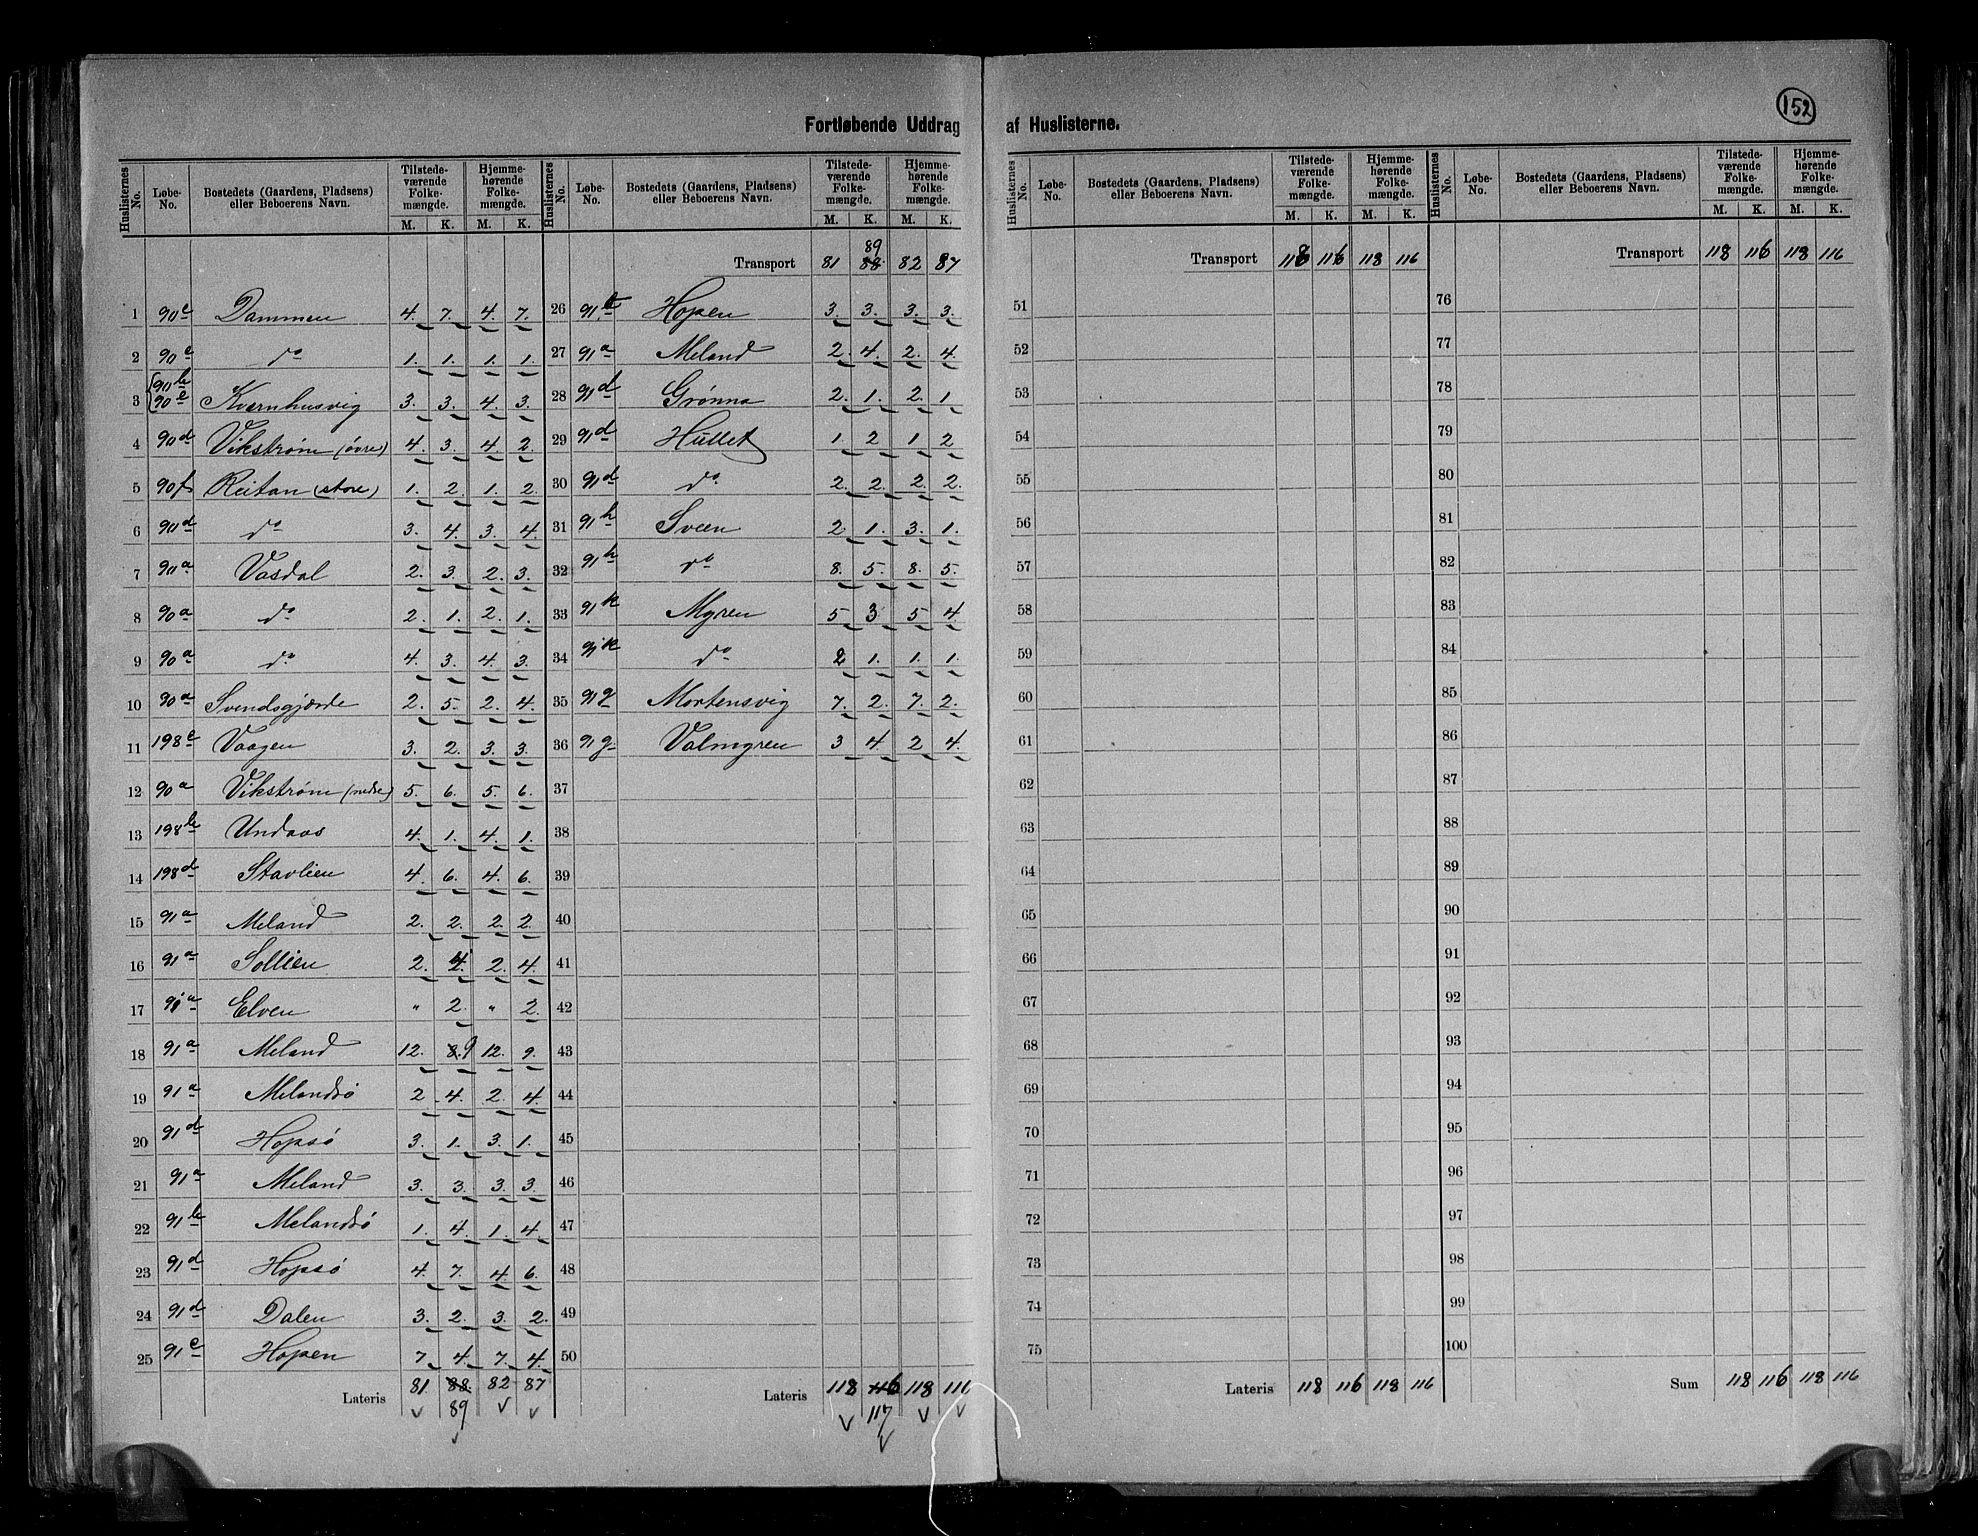 152
Fortløbende Uddrag af Huslisterne.
Huslisternes No. | Løbe-No. | Bostedets (Gaardens, Pladsens) eller Beboerens Navn. | Tilstedeværende Folkemængde. M. K. | Hjemmehørende Folkemængde. M. K.
1 90c Dammen 4. 7. 4. 7.
2 90e do 1. 1. 1. 1.
3 {90b 90e Kvernhusvig 3. 3. 4. 3.
4 90d Vikstrøm (övre) 4. 3. 4. 2.
5 90f Reitan (store) 1. 2. 1. 2.
6 90d do 3. 4. 3. 4.
7 90a Vasdal 2. 3. 2. 3.
8 90a do 2. 1. 2. 1.
9 90a do 4. 3. 4. 3.
10 90a Svendsgjærde 2. 5. 2. 4.
11 198c Vaagen 3. 2. 3. 3.
12 90a Vikstrøm (nedre) 5. 6. 5. 6.
13 198b Undaas 4. 1. 4. 1.
14 198d Stavlien 4. 6. 4. 6.
15 91a Meland 2. 2. 2. 2.
16 91a Sollien 2. 4. 2. 4.
17 91a Elven " 2. " 2.
18 91a Meland 12. 8. 9 12. 9.
19 91a Melandsö 2 4. 2. 4.
20 91d Hopsö 3. 1. 3. 1.
21 91a Meland 3. 3. 3. 3.
22 91b Melandsö 1. 4. 1. 4.
23 91d Hopsö 4. 7. 4. 6.
24 91d Dalen 3. 2. 3. 2.
25 91c Hopen 7. 4. 7. 4.
Lateris 81 88. 82 87
89
Huslisternes No. | Løbe-No. | Bostedets (Gaardens, Pladsens) eller Beboerens Navn. | Tilstedeværende Folkemængde. M. K. | Hjemmehørende Folkemængde. M. K.
89
Transport 81 88 82 87
26 Hopen 3. 3. 3. 3.
27 91a Meland 2. 4. 2. 4.
28 91d Grönna 2. 1. 2. 1.
29 91d Hullet 1. 2 1 2
30 91d do 2. 2. 2. 2.
31 91h Sveen 2 1. 3. 1.
32 91h do 8. 5. 8. 5.
33 91k Myren 5 3 5 4
34 91k do 2 1. 1. 1.
35 91g Mortensvig 7. 2. 7. 2.
36 91g Valmyren 3 4 2 4.
37
38
39
40
41
42
43
44
45
46
47
48
49
50
Lateris 118 116 118 116
117
Huslisternes No. | Løbe-No. | Bostedets (Gaardens, Pladsens) eller Beboerens Navn. | Tilstedeværende Folkemængde. M. K. | Hjemmehørende Folkemængde. M. K.
Transport 118 116 118 116
51
52
53
54
55
56
57
58
59
60
61
62
63
64
65
66
67
68
69
70
71
72
73
74
75
Lateris 118 116 118 116
Huslisternes No. | Løbe-No. | Bostedets (Gaardens, Pladsens) eller Beboerens Navn. | Tilstedeværende Folkemængde. M. K. | Hjemmehørende Folkemængde. M. K.
Transport 118 116 118 116
76
77
78
79
80
81
82
83
84
85
86
87
88
89
90
91
92
93
94
95
96
97
98
99
100
Sum 118 116 118 116